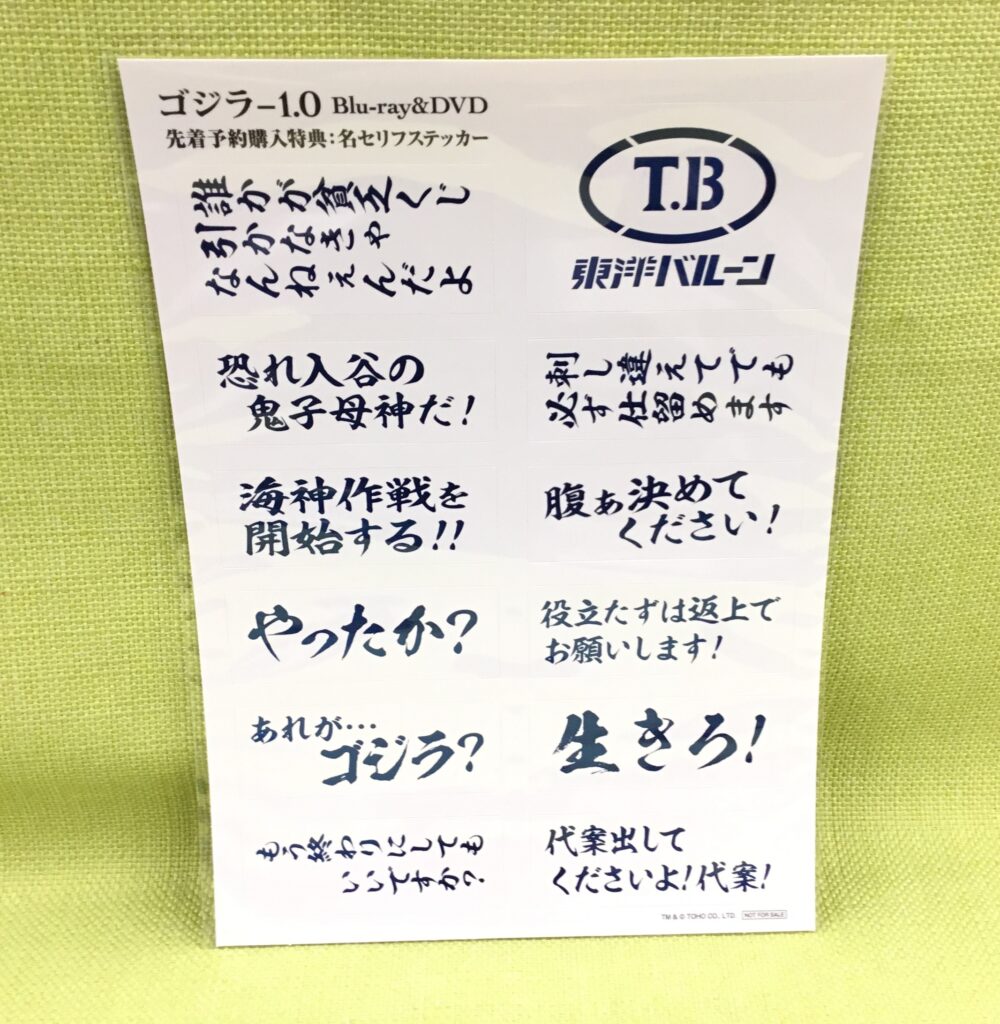 ゴジラ−1.0 Blu-ray&DVD
先着予約購入特典：名セリフステッカー
誰かが貧乏くじ
引かなきゃ
なんねぇんだよ
T.B
東洋バルーン
恐れ入谷の
鬼子母神だ！
刺し違えてでも
必ず仕留めます
海神作戦を
開始する！！
腹ぁ決めて
ください！
やったか？
役立たずは返上で
お願いします！
あれが…
ゴジラ？
生きろ！
もう終わりにしても
いいですか？
代案出して
くださいよ！代案！
TM & © TOHO CO., LTD. NOT FOR SALE